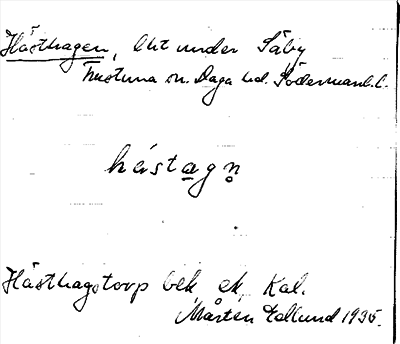 Hästhagen, lht under Säby
Frustuna sn. Daga hd. Söderman l. l.
hästagn̥
Hästhagstorp bek ek. Kal.
Mårten Edlund 1935.